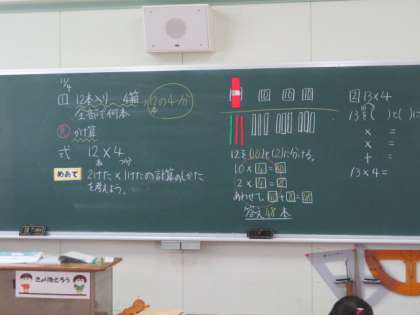 11/4
1 12本入り 4箱
全部で何本
12の4つ分
かけ算
式 12×4
本 つ分
めあて 2けた×1けたの計算のしかた
を考えよう。
10 10 10
12を(10)と(2)に分ける。
10×4=40
2×4=8
あわせて 40+8=48
答え 48本
2 13×4
13を( )と( )に
× =
× =
+ =
13×4=